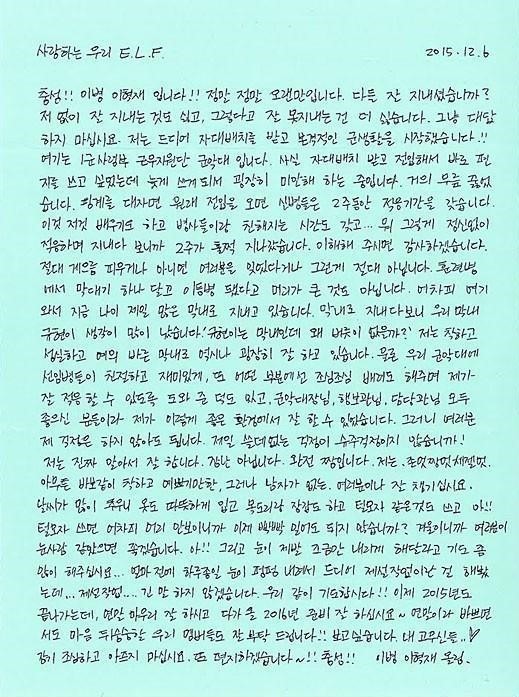 사랑하는 우리 E.L.F. 2015.12.6
충성!! 이병 이혁재 입니다!! 정말 정말 오랜만입니다. 다들 잘 지내셨습니까?
저 없이 잘 지내는 것도 싫고, 그렇다고 잘 못지내는 건 더 싫습니다. 그냥 대답
하지 마십시요. 저는 드디어 자대배치를 받고 본격적인 군생활을 시작했습니다.!!
여기는 1군사령부 근무지원단 군악대 입니다. 사실 자대배치 받고 전입해서 바로 편
지를 쓰고 싶었는데 늦게 쓰게 되서 굉장히 미안해 하는 중입니다. 거의 무릎 꿇었
습니다. 핑계를 대자면 원래 전입을 오면 신병들은 2주동안 적응기간을 갖습니다.
이것 저것 배우기도 하고 병사들이랑 친해지는 시간도 갖고... 뭐 그렇게 정신없이
적응하며 지내다 보니까 2주가 훌쩍 지나갔습니다. 이해해 주시면 감사하겠습니다.
절대 게으름 피우거나 아니면 여러분을 잊었다거나 그런게 절대 아닙니다. 훈련병
에서 막대기 하나 달고 이등병 됐다고 머리가 큰 것도 아닙니다. 어차피 여기
와서 지금 나이 제일 많은 막내로 지내고 있습니다. 막내로 지내다보니 우리 막내
규현이 생각이 많이 났습니다. '규현이는 막내인데 왜 버릇이 없을까?' 저는 착하고
성실하고 예의 바른 막내로 역시나 굉장히 잘 하고 있습니다. 물론 우리 군악대에
선임병들이 친절하고 재미있게, 또 어떤 부분에선 조심조심 배려도 해주며 제가
잘 적응 할 수 있도록 도와 준 덕도 있고, 군악대장님, 행보관님, 담당관님 모두
좋으신 분들이라 제가 이렇게 좋은 환경에서 잘 할 수 있었습니다. 그러니 여러분
제 걱정은 하지 않아도 됩니다. 제일 쓸데없는 걱정이 슈주걱정이지 않습니까!
저는 진짜 알아서 잘 합니다. 장난 아닙니다. 완전 짱입니다. 저는
아무튼 바보같이 착하고 예쁘기만한, 그러나 남자가 없는.. 여러분이나 잘 챙기십시요.
날씨가 많이 추우니 옷도 따뜻하게 입고 목도리랑 장갑도 하고 털모자 같은것도 쓰고 아!!
털모자 쓰면 어차피 머리 안보이니까 이제 빡빡 밀어도 되지 않습니까? 겨울이니까 여러분이
눈사람 같았으면 좋겠습니다. 아!! 그리고 눈이 제발 조금만 내리게 해달라고 기도 좀
많이 해주십시요... 얼마 전에 하루종일 눈이 펑펑 내려서 드디어 제설작업이란 걸 해봤
는데... 제설작업... 긴 말 하지 않겠습니다. 우리 같이 기도합시다!! 이제 2015년도
끝나가는데, 연말 마무리 잘 하시고 다가 올 2016년 준비 잘 하십시요~ 연말이라 바쁘면
서도 마음 뒤숭숭할 우리 멤버들도 잘 부탁 드립니다!! 보고싶습니다. 내 고무신들..♡
감기 조심하고 아프지 마십시요. 또 편지하겠습니다~!! 충성!! 이병 이혁재 올림.